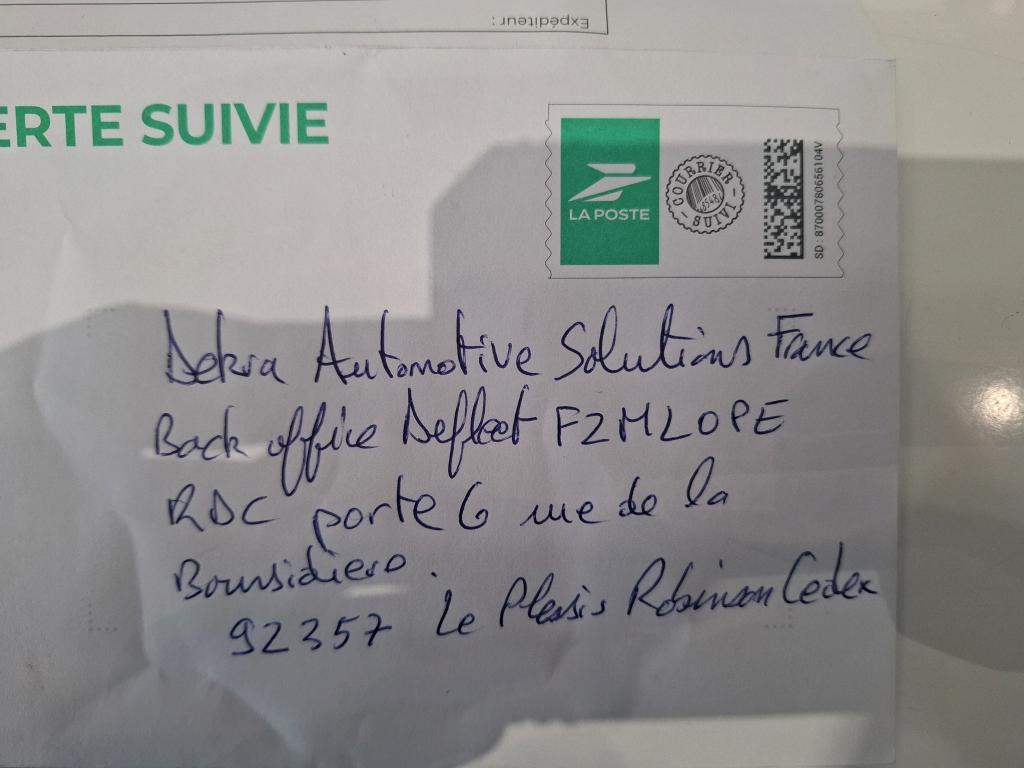 Expéditeur :
ERTE SUIVIE
LA POSTE
COURRIER SUIVI
SD : 87000780656104V
Dekra Automotive Solutions France
Back office Defleet F2MLOPE
RDC porte G rue de la
Boursidiere.
92357 Le Plessis Robinson Cedex